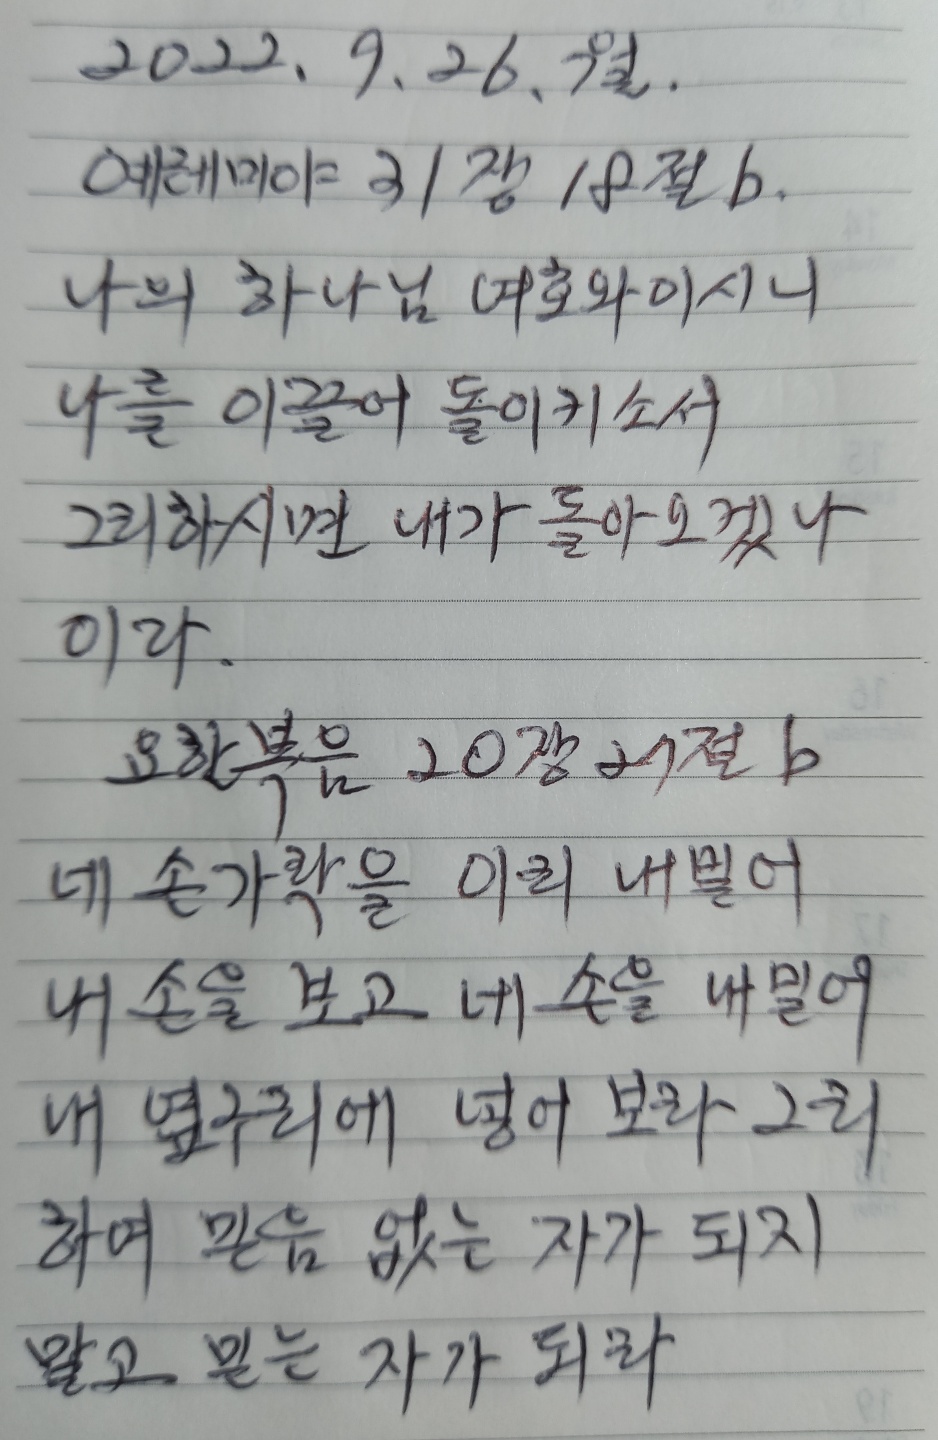 2022. 9. 26. 월.
예레미야 31장 18절 b.
나의 하나님 여호와이시니
나를 이끌어 돌이키소서
그리하시면 내가 돌아오겠나
이다.
요한복음 20장 27절 b
네 손가락을 이리 내밀어
내 손을 보고 네 손을 내밀어
내 옆구리에 넣어 보라 그리
하여 믿음 없는 자가 되지
말고 믿는 자가 되라